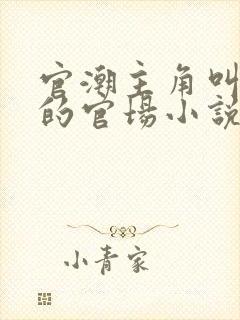 官潮主角叫
的官場小説
小青家